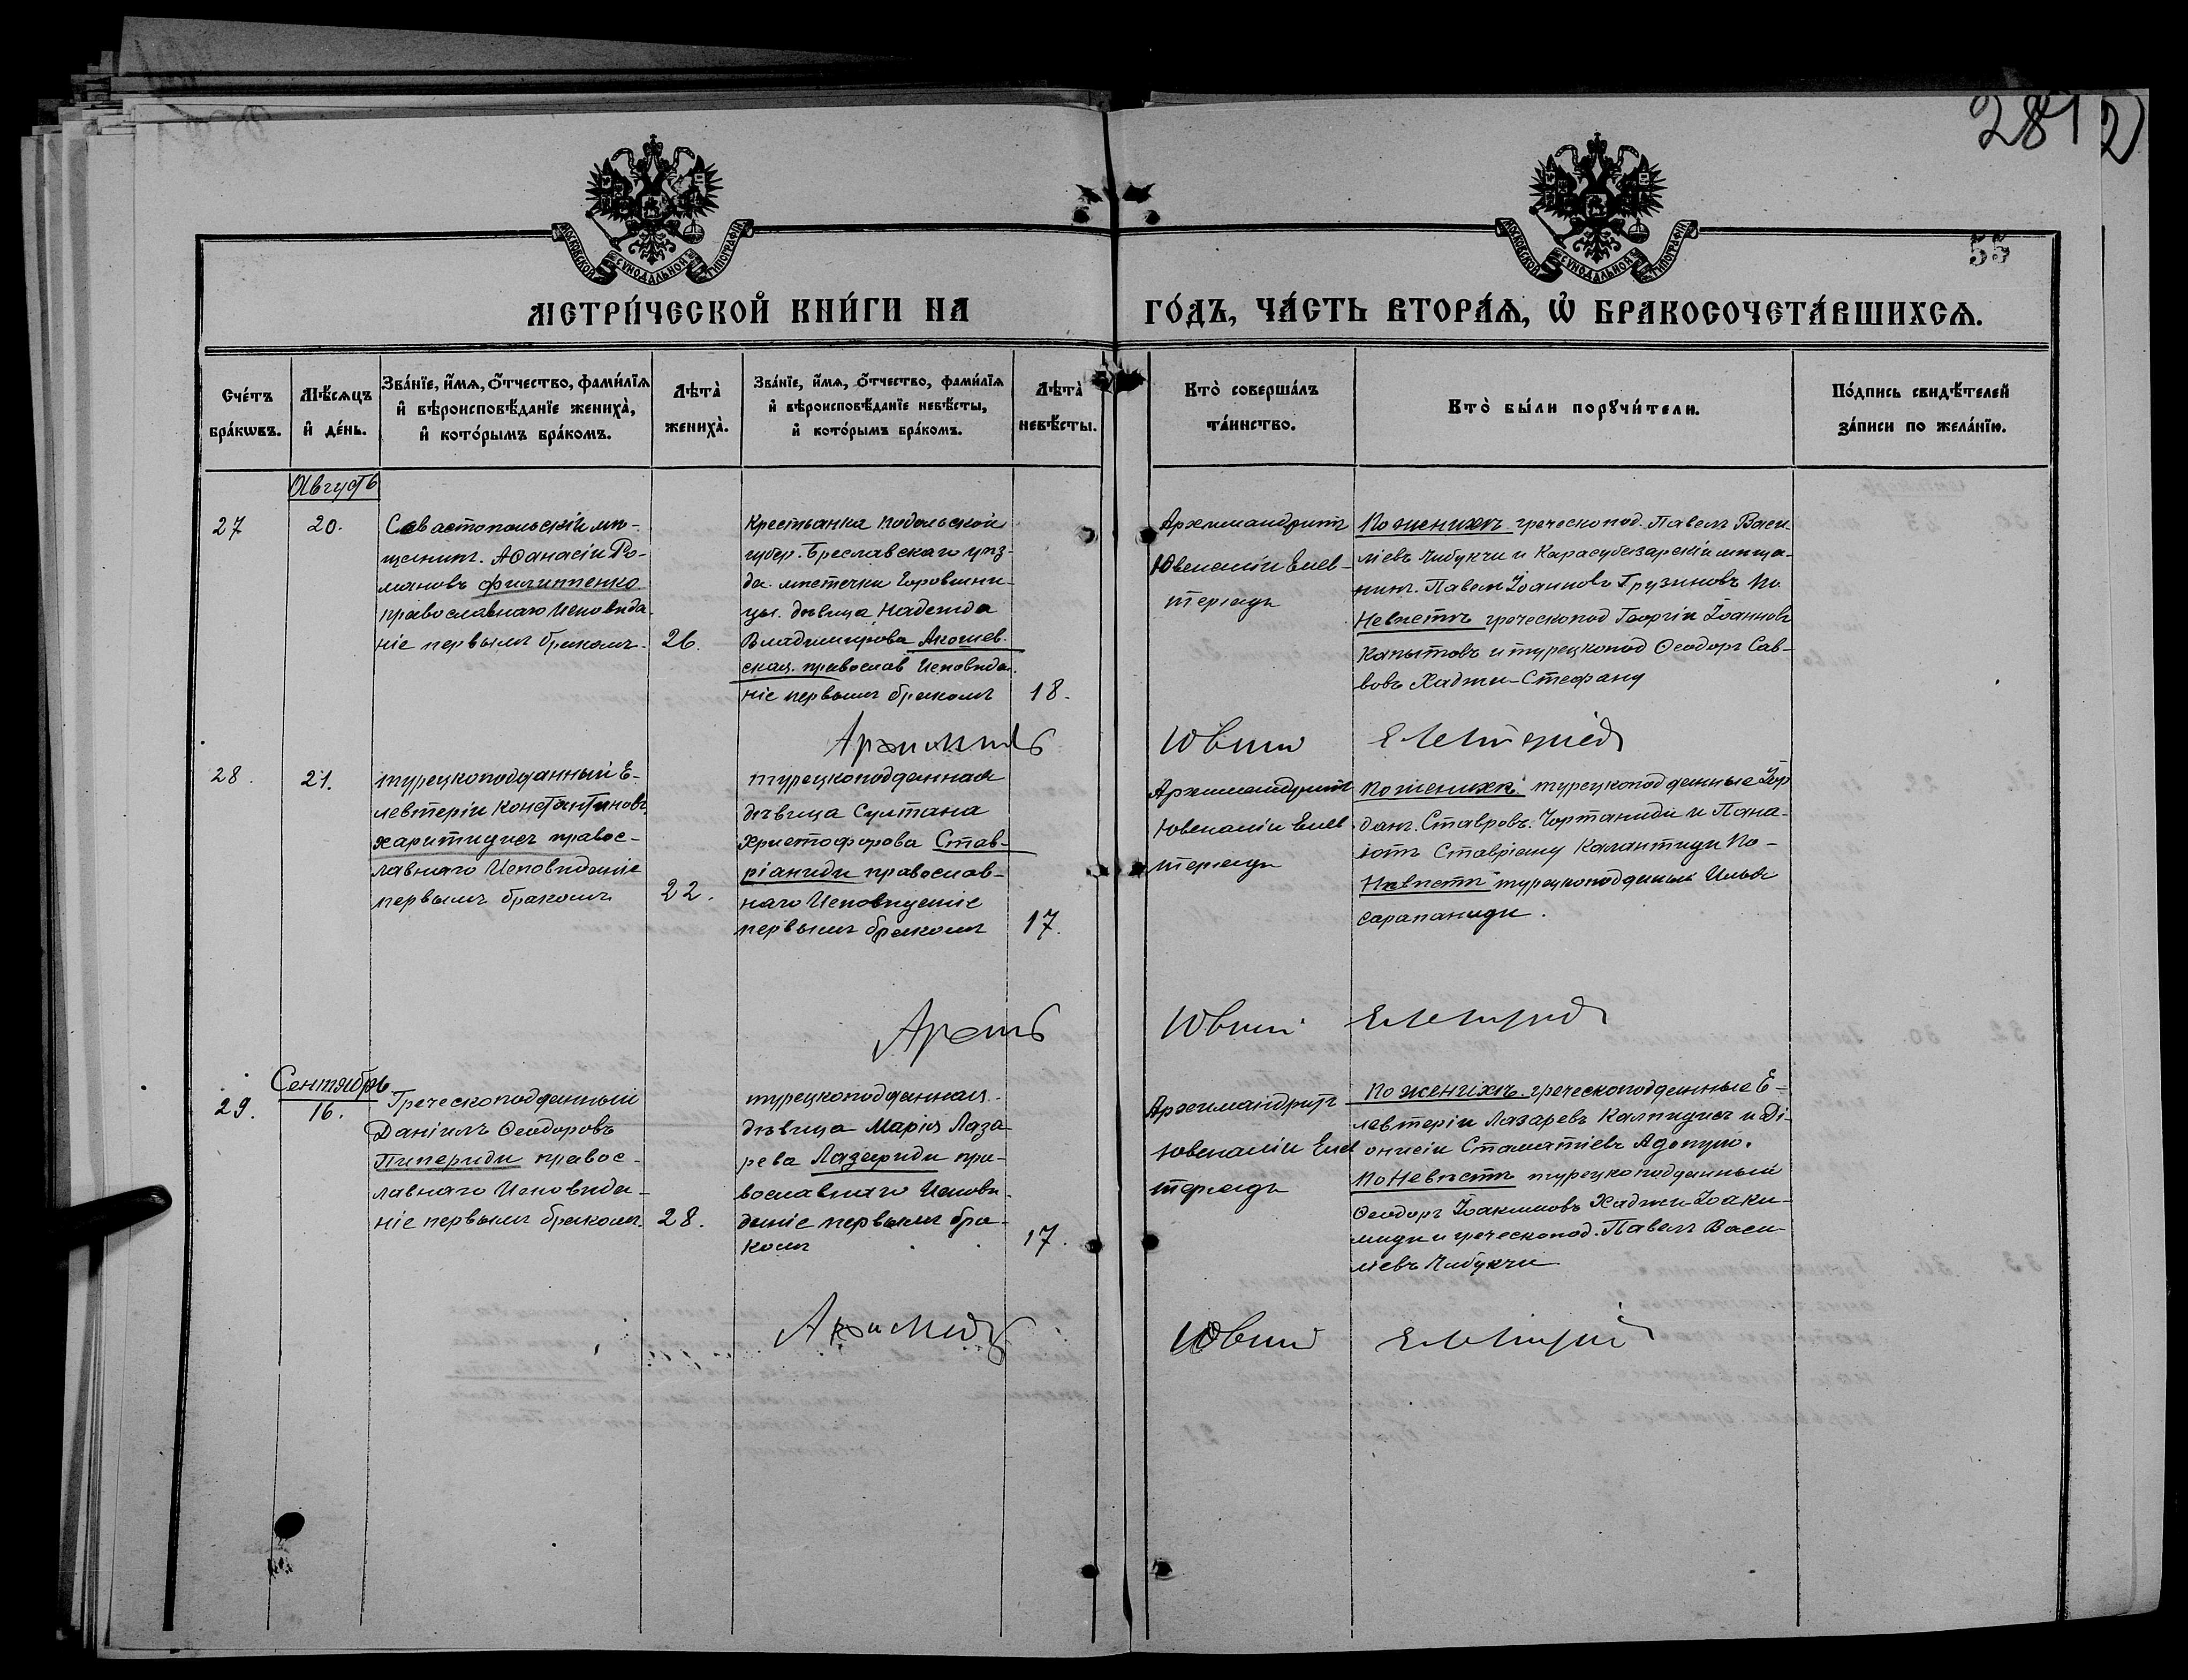 2812
55
МОСКОВСКОЙ СѴНОДАЛЬНОЙ ТИПОГРАФІИ
МОСКОВСКОЙ СѴНОДАЛЬНОЙ ТИПОГРАФІИ
МЕТРИ́ЧЕСКОЙ КНИ́ГИ НА ГО́ДЪ, ЧА́СТЬ ВТОРА́Ѧ, Ѡ҆ БРАКОСОЧЕТА́ВШИХСѦ.
Сче́тъ
бра́кѡвъ.
Мѣ́сѧцъ
и҆ де́нь.
Зва́нїе, и҆́мѧ, о҆́тчество, фами́лїѧ
и҆ вѣроисповѣ́данїе жениха̀,
и҆ кото́рымъ бра́комъ.
Лѣта̀
жениха̀.
Зва́нїе, и҆́мѧ, о҆́тчество, фами́лїѧ
и҆ вѣроисповѣ́данїе невѣ́сты,
и҆ кото́рымъ бра́комъ.
Лѣта̀
невѣ́сты.
Кто̀ соверша́лъ
та́инство.
Кто̀ бы́ли порꙋчи́тели.
По́дпись свидѣ́телей
за́писи по жела́нїю.
Августъ
27
20.
Севастопольскій мѣ-
щанинъ. Аѳанасій Ро-
мановъ Филиппенко
православнаго Исповѣда-
ніе первымъ бракомъ.
26.
Крестьянка Подольской
губер. Бреславскаго уѣз-
да. мѣстечки
цы. дѣвица Надежда
Владимирова
ская. православ Исповѣда.
ніе первымъ бракомъ
18.
Архимандритъ
Ювеналій Елев-
теріадъ
По женихѣ греческопод. Павелъ Васи
ліевъ Чибукчи и Карасубазарскій мѣща-
нинъ. Павелъ Іоанновъ Грузиновъ по
Невѣстѣ греческопод Георгій Іоанновъ
Капытовъ и турецкопод Ѳеодоръ Сав-
вовъ Хаджи-Стефану
28.
21.
турецкоподданный Е-
левтерій Константиновъ
Харитидисъ правос-
лавнаго Исповѣданіе
первымъ бракомъ
22.
турецкоподданная
дѣвица Султана
Христофорова Став-
ріаниди православ-
наго Исповѣданіе
первымъ бракомъ
17.
Архимандритъ
Ювеналій Елев
теріадъ
По женихѣ. турецкоподданные Іор
данъ. Ставровъ. Чортаниди и Пана-
іотъ Ставріану Калантиди По-
Невѣстѣ турецкоподданный Илья
Сарапаниди.
Сентябрь
29.
16.
Греческоподданный
Даніилъ Ѳеодоровъ
Пипериди правос-
лавнаго Исповѣда-
ніе первымъ бракомъ.
28.
турецкоподданная.
дѣвица Марія Лаза-
рева Лазариди пра-
вославнаго Исповѣ-
даніе первымъ бра-
комъ
17.
Архимандритъ
Ювеналій Елев
теріадъ
По женихѣ. греческоподданные Е-
левтерій Лазаревъ Калпидисъ и Ді-
онисій Стаматіевъ Адопуло.
По Невѣстѣ турецкоподданный
Ѳеодоръ Іоакимовъ Хаджи-Іоаки-
миди и греческопод. Павелъ Васи-
ліевъ Чибукчи